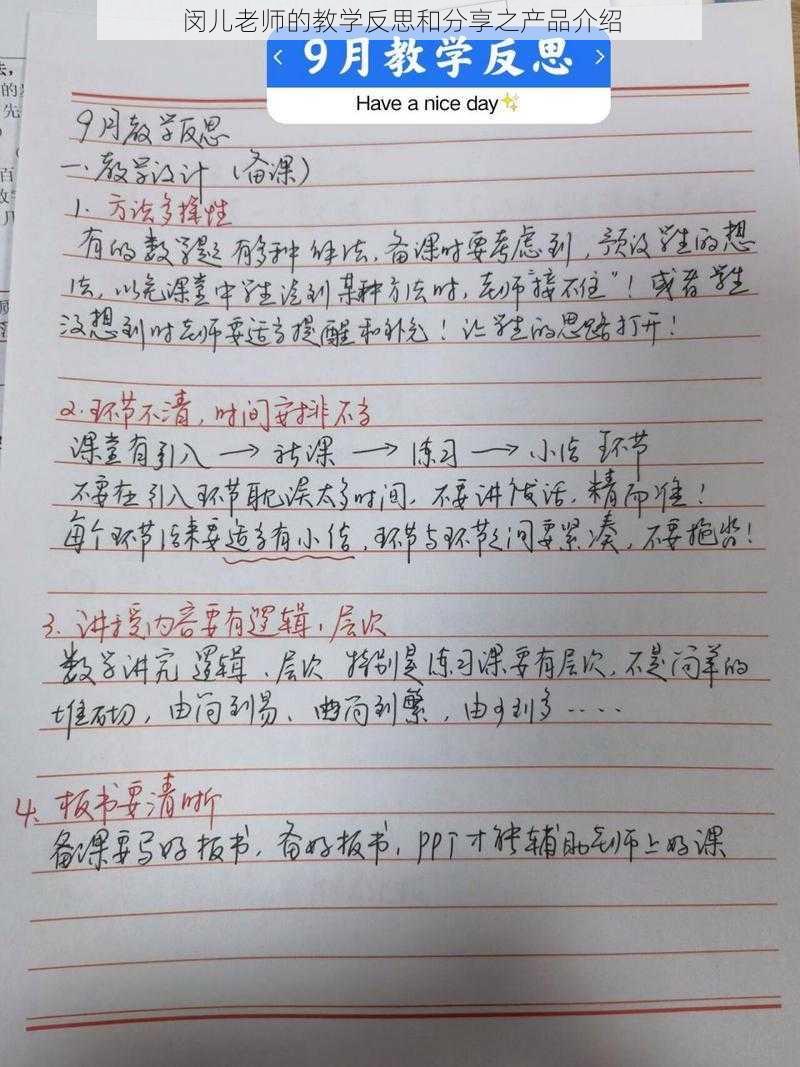 闵儿老师的教学反思和分享之产品介绍
9月教学反思
Have a nice day✨
9月教学反思
一、教学设计（备课）
1. 方法多样性
有的数学题有多种解法，备课时要考虑到，预设学生的想
法，以免课堂中学生说到某种方法时，老师"接不住"！或者学生
没想到时老师要适当提醒和补充！让学生的思路打开！
2.环节不清，时间安排不当
课堂有引入 → 新课 → 练习 → 小结 环节
不要在引入环节耽误太多时间，不要讲废话，精而准！
每个环节结束要适当有小结，环节与环节之间要紧凑，不要拖沓！
3. 讲授内容要有逻辑、层次
数学讲究逻辑、层次 特别是练习课要有层次，不是简单的
堆砌，由简到易、由简到繁，由少到多……
4. 板书要清晰
备课要写好板书，备好板书，PPT才能辅助老师上好课